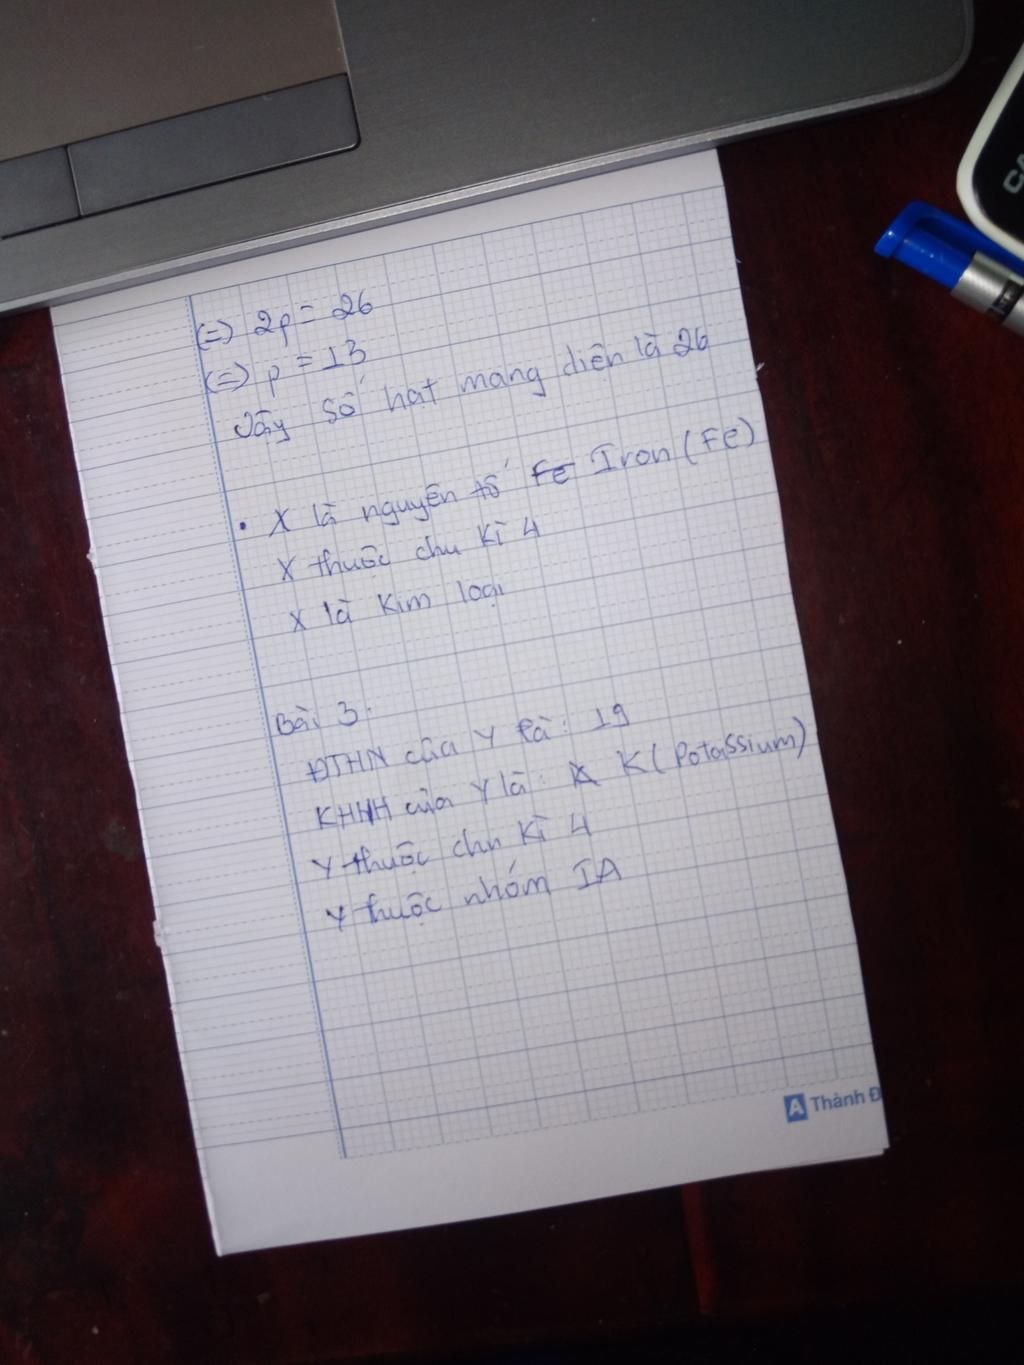 (=) 2p = 26
(=) p = 13
Vậy số hạt mang điện là 26
• X là nguyên tố Iron (Fe)
X thuộc chu kì 4
X là kim loại
Bài 3:
ĐTHN của Y là: 19
KHHH của Y là: K (Potassium)
Y thuộc chu kì 4
Y thuộc nhóm IA
A Thành Đ